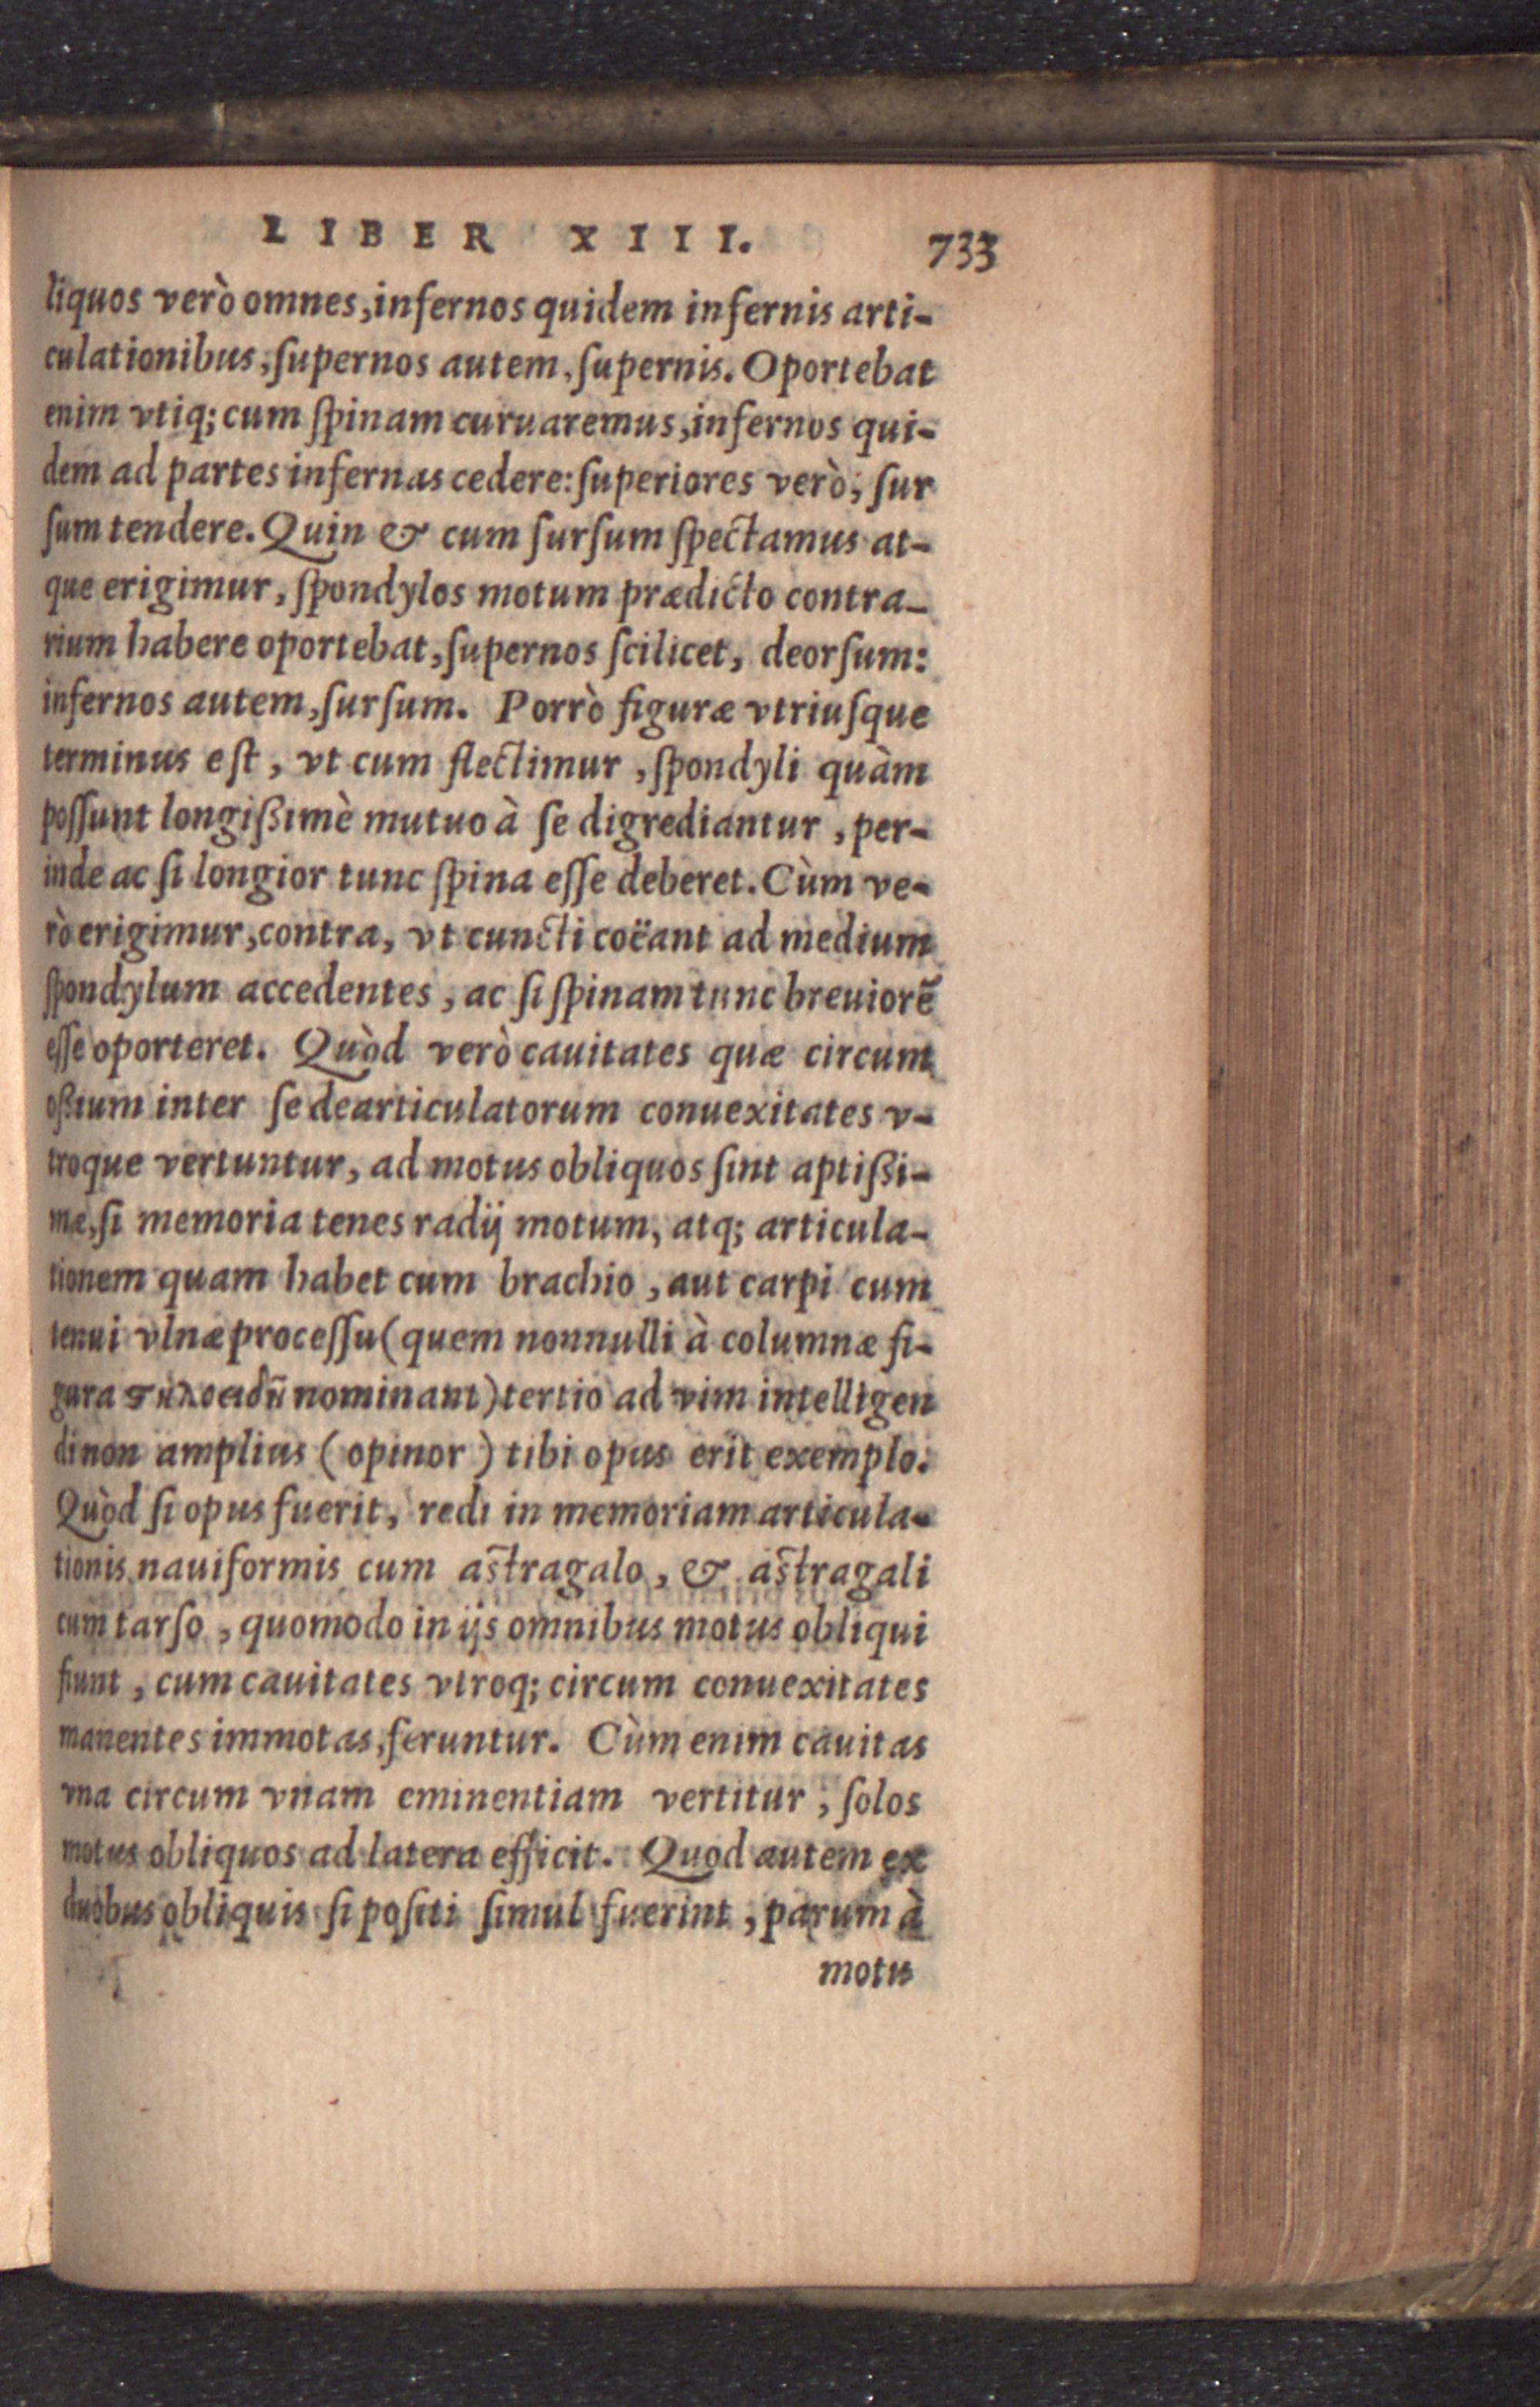 LIBER XIII. 733
liquos verò omnes, infernos quidem infernis arti-
culationibus, ſupernos autem, ſupernis. Oportebat
enim vtiq; cum ſpinam curuaremus, infernos qui-
dem ad partes infernas cedere: ſuperiores verò, ſur
ſum tendere. Quin & cum ſurſum ſpectamus at-
que erigimur, ſpondylos motum prædicto contra-
rium habere oportebat, ſupernos ſcilicet, deorſum:
infernos autem, ſurſum. Porrò figuræ vtriuſque
terminus eſt, vt cum flectimur, ſpondyli quàm
poſſunt longißimè mutuo à ſe digrediantur, per-
inde ac ſi longior tunc ſpina eſſe deberet. Cùm ve-
rò erigimur, contra, vt cuncti coëant ad medium
ſpondylum accedentes, ac ſi ſpinam tunc breuiorē
eſſe oporteret. Quòd verò cauitates quæ circum
oßium inter ſe dearticulatorum conuexitates v-
troque vertuntur, ad motus obliquos ſint aptißi-
mæ, ſi memoria tenes radij motum, atq; articula-
tionem quam habet cum brachio, aut carpi cum
tenui vlnæ proceſſu (quem nonnulli à columnæ fi-
gura ϛηλοειδῆ nominant) tertio ad vim intelligen
di non amplius (opinor) tibi opus erit exemplo.
Quòd ſi opus fuerit, redi in memoriam articula-
tionis nauiformis cum aſtragalo, & aſtragali
cum tarſo, quomodo in ijs omnibus motus obliqui
fiunt, cum cauitates vtroq; circum conuexitates
manentes immotas, feruntur. Cùm enim cauitas
vna circum vnam eminentiam vertitur, ſolos
motus obliquos ad latera efficit. Quod autem ex
duobus obliquis ſi poſiti ſimul fuerint, parum à
motu